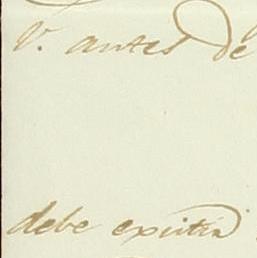 V. antes de
debe existir